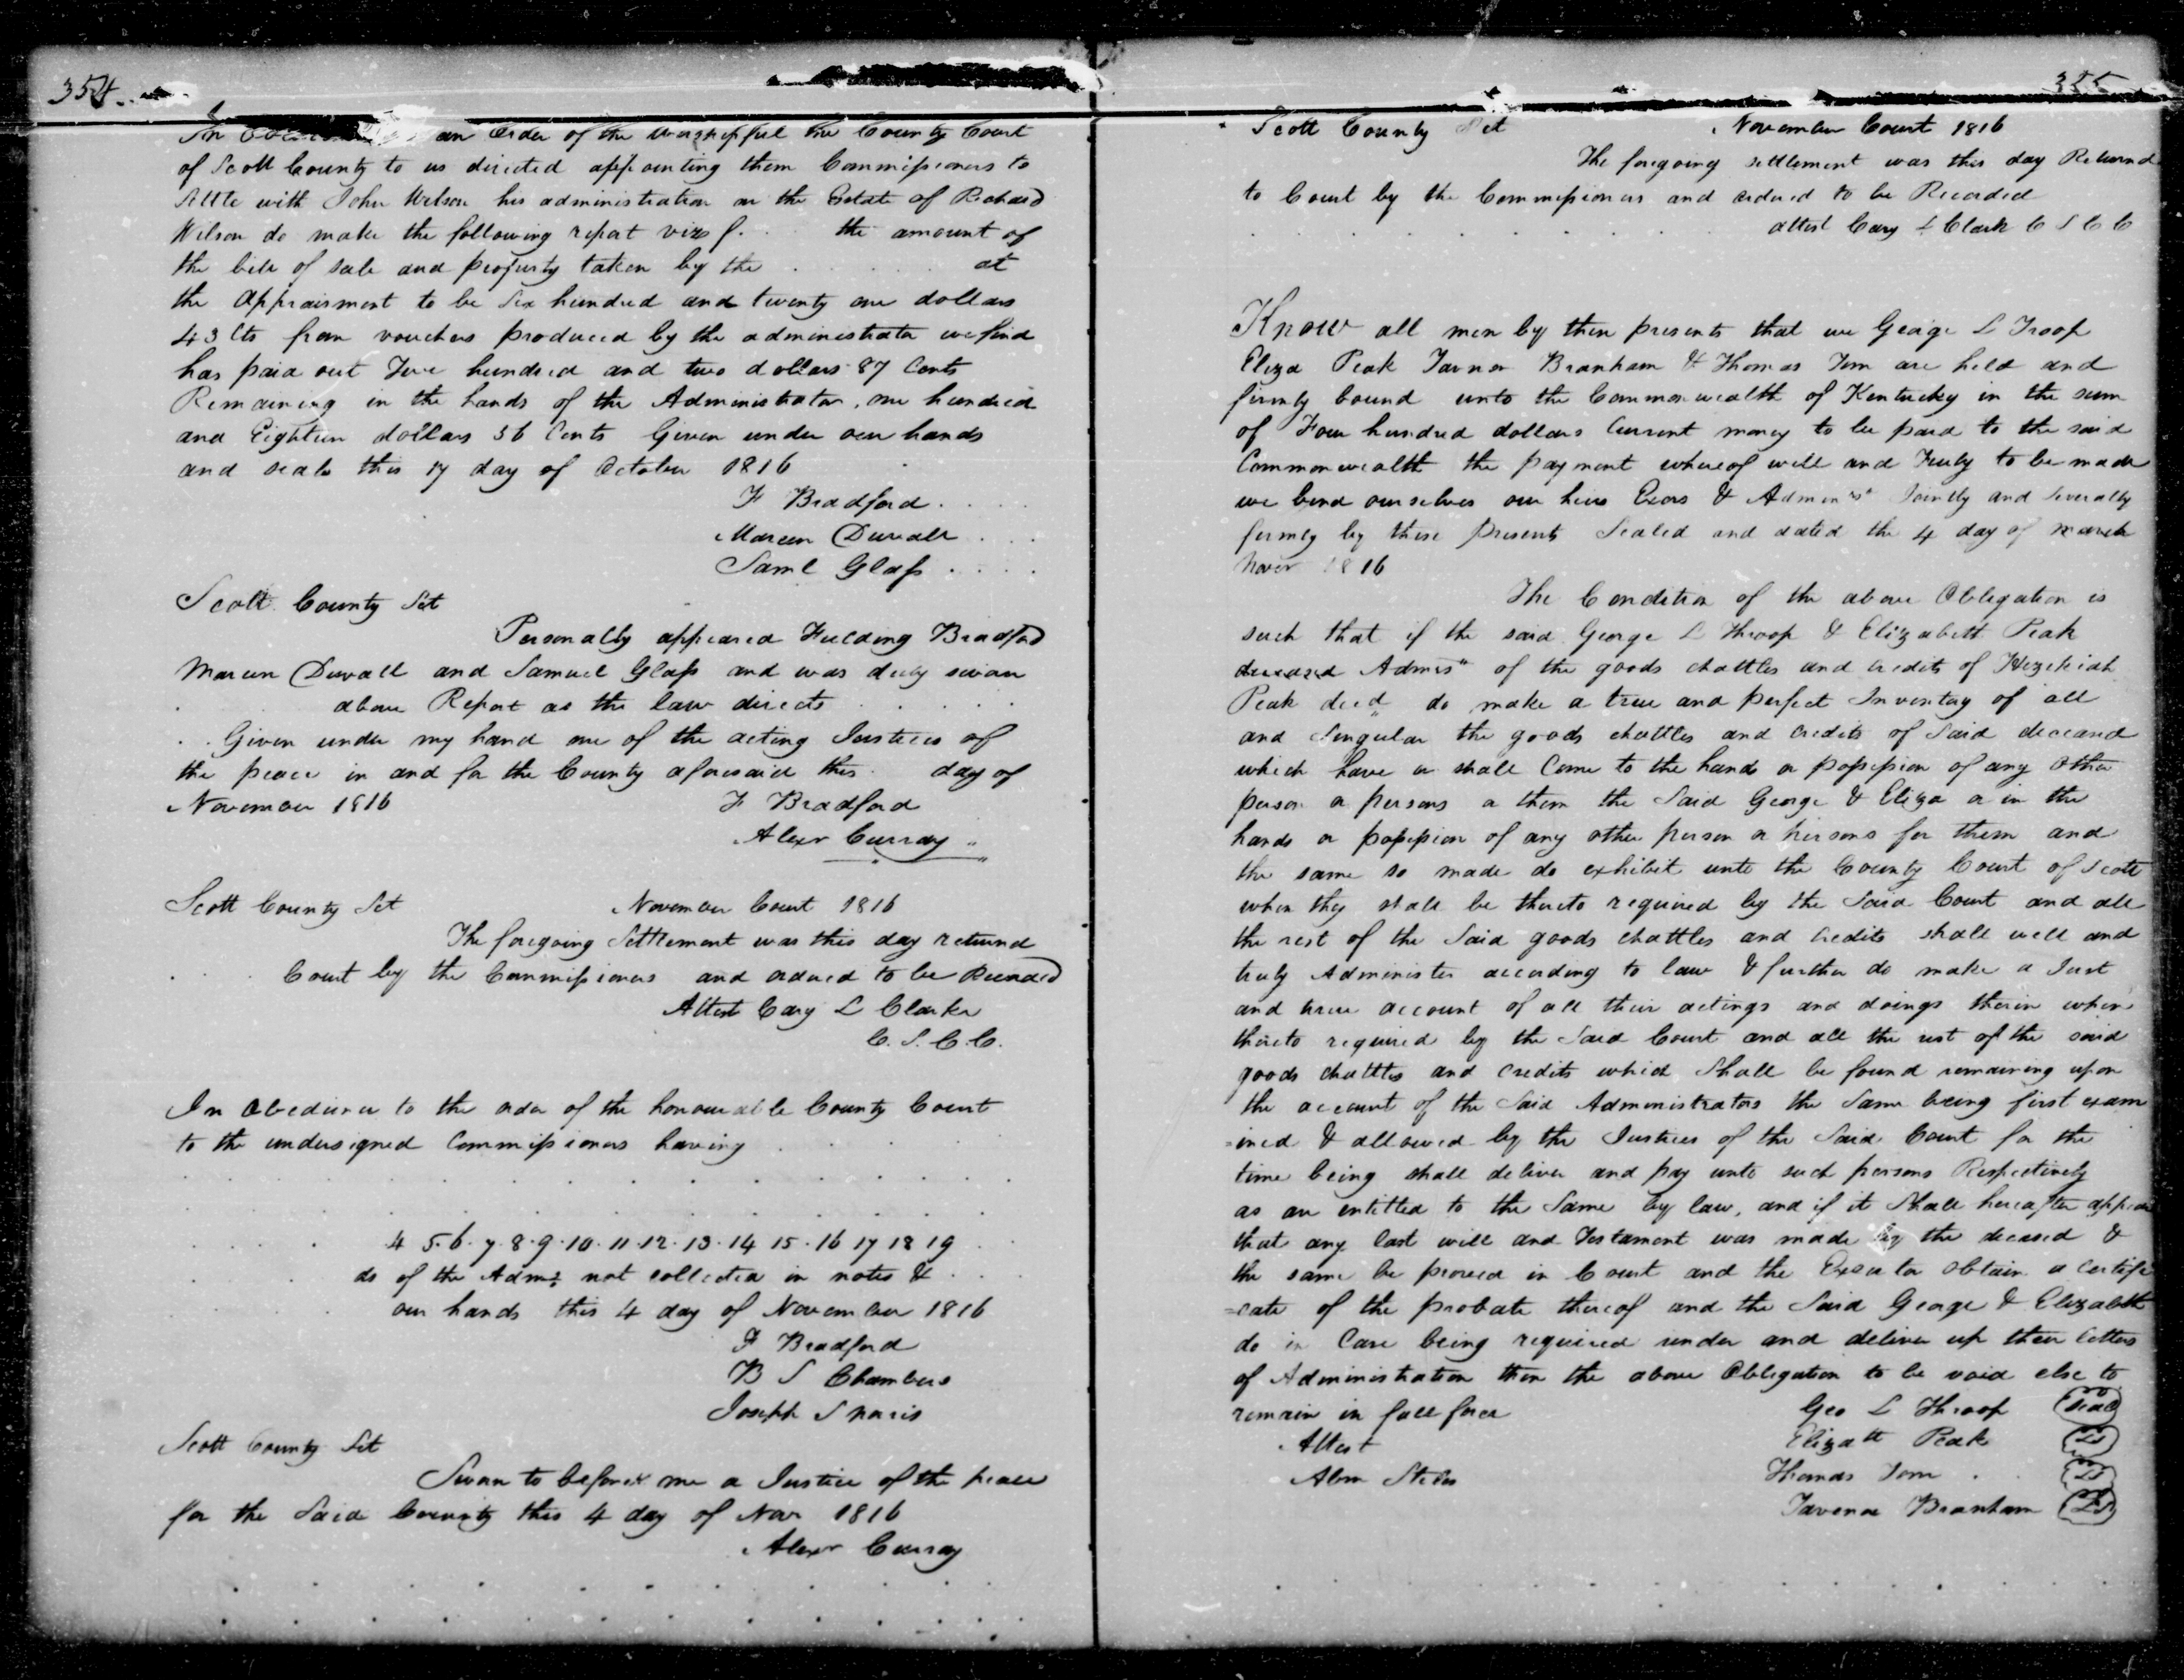 354
In an Order of the worshipful the County Court
of Scott County to us directed appointing them Commissioners to
settle with John Wilson his administration on the Estate of Richard
Wilson do make the following report viz the amount of
the bill of sale and property taken by the . . . . . at
the Appraisment to be Six hundred and twenty one dollars
43 Cts from vouchers produced by the administrator we find
has paid out Five hundred and two dollars 87 Cents
Remaining in the hands of the Administrator, one hundred
and Eighteen dollars 56 Cents Given under our hands
and seals this 17 day of October 1816
F Bradford . . . .
Mareen Duvall . . .
Saml Glass . . . .
Scott County Sct
Personally appeared Fielding Bradford
Mareen Duvall and Samuel Glass and was duly sworn
. . above Report as the law directs . . . . .
. . Given under my hand one of the acting Justices of
the peace in and for the County aforesaid this day of
November 1816 F Bradford
Alexr Curray
Scott County Sct November Court 1816
The foregoing Settlement was this day returnd
. . . Court by the Commissioners and ordered to be Recorded
Attest Cary L Clarke
C. S. C. C.
In Obedience to the order of the honourable County Court
to the undersigned Commissioners having . . . .
4 5. 6. 7. 8. 9. 10. 11. 12. 13. 14 15. 16 17 18 19 . .
. . . ds of the Adms not collected in notes & . . .
. . . our hands this 4 day of November 1816
F Bradford
B S Chambers
Joseph S Norris
Scott County Sct
Sworn to before me a Justice of the peace
for the Said County this 4 day of Nov 1816
Alexr Curray
355
Scott County Sct November Court 1816
The foregoing settlement was this day Returnd
to Court by the Commissioners and ordered to be Recorded
attest Cary L Clark C S C C
Know all men by these presents that we George L Troop
Eliza Peak Tavner Branham & Thomas Tom are held and
firmly bound unto the Commonwealth of Kentucky in the sum
of Four hundred dollars Current money to be paid to the said
Commonwealth the payment whereof well and Truly to be made
we bind ourselves our heirs Exors & Admin rs Jointly and Severally
firmly by these presents Sealed and dated the 4 day of march
Nover 1816
The Condition of the above Obligation is
such that if the said George L Throop & Elizabeth Peak
deceased Admrs of the goods chattles and credits of Hezekiah
Peak decd do make a true and perfect Inventory of all
and Singular the goods chattles and credits of Said deceasd
which have or shall Come to the hands or possession of any other
person or persons or them the Said George & Eliza or in the
hands or possession of any other person or persons for them and
the same so made do exhibit unto the County Court of Scott
when they shall be thereto required by the Said Court and all
the rest of the Said goods chattles and credits shall well and
truly Administer according to law & further do make a Just
and true account of all their actings and doings therein when
thereto required by the Said Court and all the rest of the said
goods chattles and credits which Shall be found remaining upon
the account of the Said Administrators the Same being first exam
=ined & allowed by the Justices of the Said Court for the
time being shall deliver and pay unto such persons Respectively
as are entitled to the Same by law, and if it Shall hereafter appear
that any last will and Testament was made by the decased &
the same be proved in Court and the Executor obtain a certifi
=cate of the probate thereof and the Said George & Elizabeth
do in Case being required render and deliver up their letters
of Administration then the above Obligation to be void else to
remain in full force Geo L Throop Seal
Attest Elizath Peak LS
Thomas Tom . . LS
Tavenor Branham LS